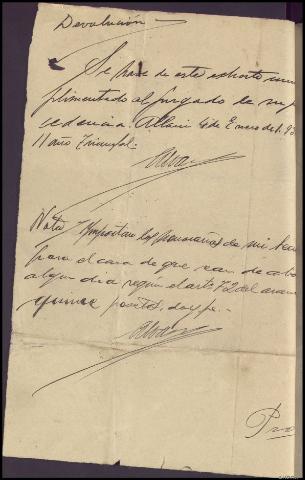 Devolución
Se hace de este exhorto cum
plimentado al Juzgado de su pro
cedencia. Allariz 4 de Enero de 1.93
II Año Triunfal.
Nota Importan los honorarios de mi Sec
para el caso de que sean de abo
algun dia según el arto 72 del aran
quince pesetas, doy fe.-
Pro